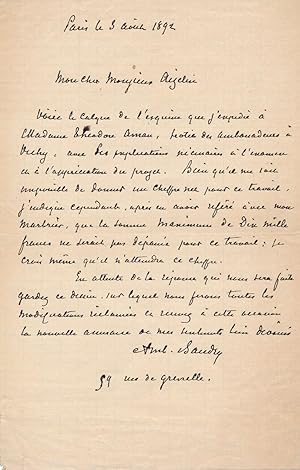 Paris le 3 août 1892
Mon cher Monsieur
Voici le calque de l'esquisse que j'expédie à
Madame Théodore poste des ambassadeurs à
Vichy, avec les explications nécessaires à l'examen
et à l'appréciation du projet. Bien qu'il me soit
impossible de donner un chiffre net pour ce travail,
j'indique cependant, après en avoir référé avec mon
marbrier, que la somme maximum de Dix mille
francs ne serait pas dépassée pour ce travail; je
crois même qu'il n'attendra ce chiffre.
En attente de la réponse qui nous sera faite
gardez ce dessin, sur lequel nous ferons toutes les
modifications réclamées et recevez à cette occasion
la nouvelle assurance de mes sentiments bien dévoués
Amb. Baudry
59 rue de Grenelle.